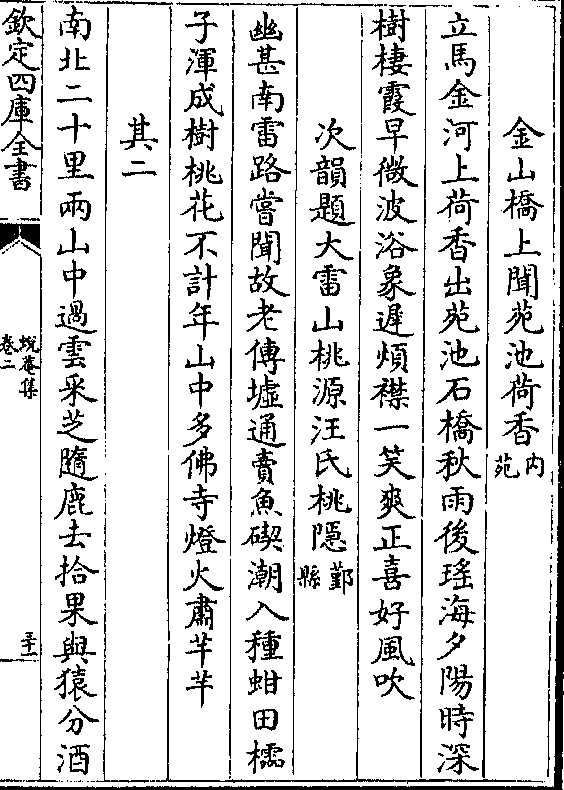 金山橋上聞苑池荷香内苑
立馬金河上荷香出苑池石橋秋雨後瑤海夕陽時深
樹棲霞早微波浴象遲煩襟一笑爽正喜好風吹
次韻題大雷山桃源汪氏桃隠鄞縣
幽甚南雷路嘗聞故老傳墟通賣魚碶潮入種蚶田橘
子渾成樹桃花不計年山中多佛寺燈火肅芊芊
其二
南北二十里兩山中過雲采芝隨鹿去拾果與猿分酒
欽定四庫全書
蛻菴集
卷二
三十